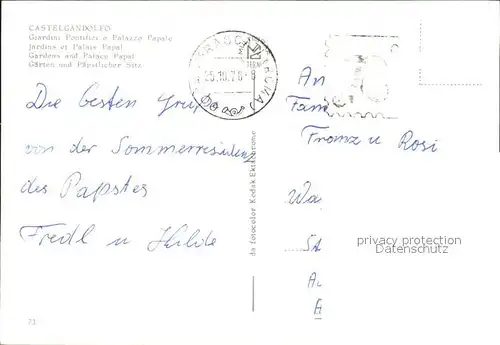 CASTELGANDOLFO
Giardini Pontifici e Palazzo Papale
Jardins et Palais Papal
Gardens and Palace Papal
Gärten und Päpstlicher Sitz
25.10.76-8
Die besten Grü
von der Sommerresidenz
des Papstes
Fredl u Hilde
da fotocolor Kodak Ektachrome
An
Fam
Franz u Rosi
Wa
St
A
privacy protection
Datenschutz
71